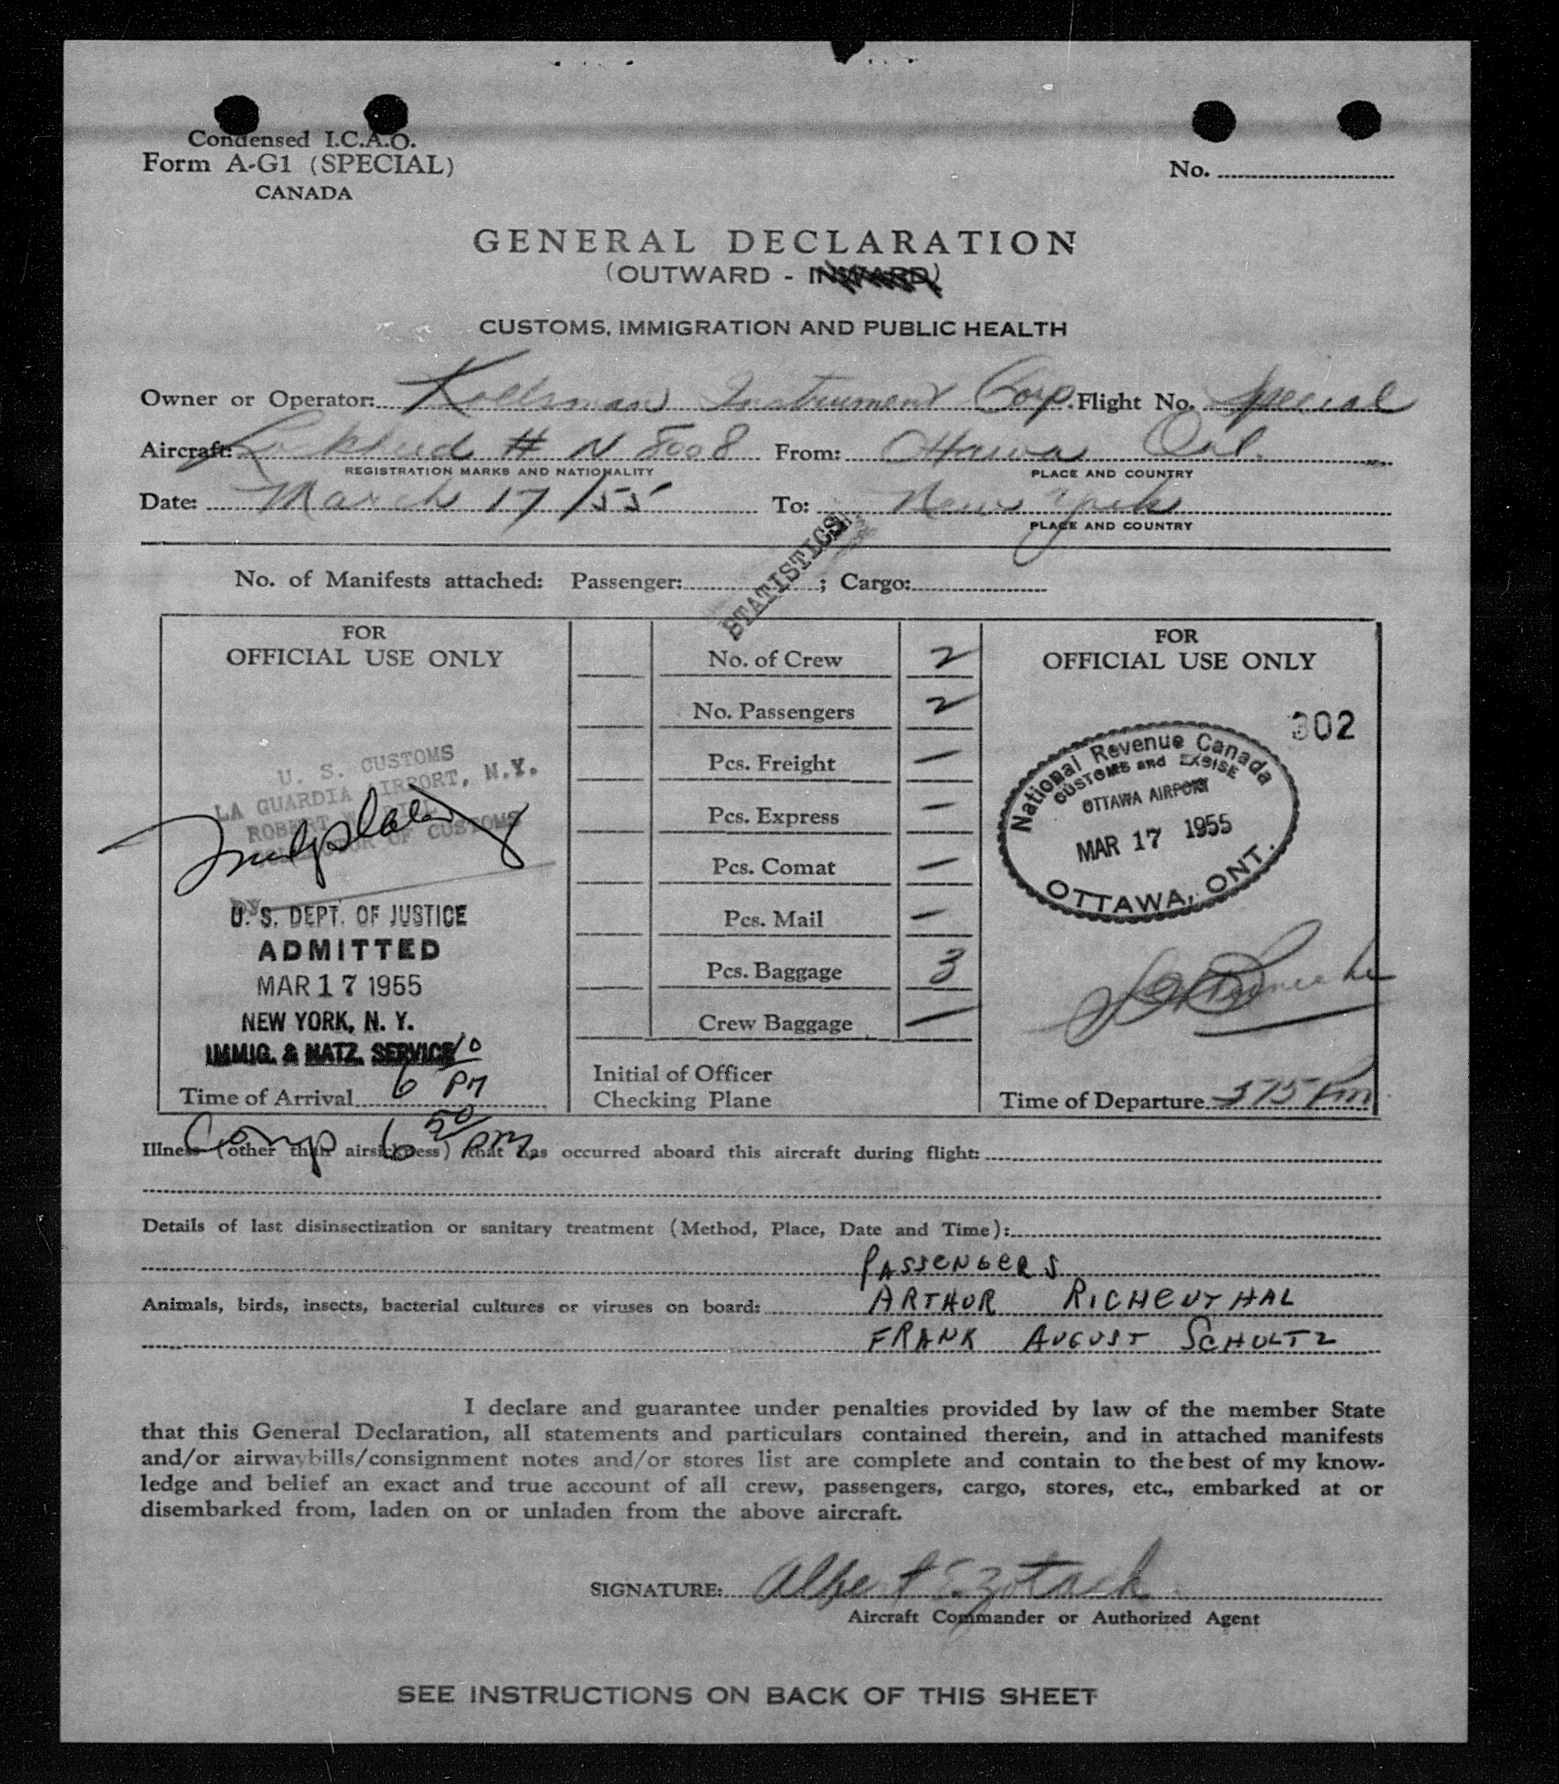 Condensed I.C.A.O.
Form A-G1 (SPECIAL)
CANADA
No.
GENERAL DECLARATION
(OUTWARD - INWARD)
CUSTOMS, IMMIGRATION AND PUBLIC HEALTH
Owner or Operator: Kollsman Instrument Corp. Flight No. Special
Aircraft: Lockheed # N 8008 From: Ottawa Ont.
REGISTRATION MARKS AND NATIONALITY PLACE AND COUNTRY
Date: March 17/55 To: New York
PLACE AND COUNTRY
STATISTICS
No. of Manifests attached: Passenger: ; Cargo:
FOR
OFFICIAL USE ONLY
U. S. CUSTOMS
LA GUARDIA AIRPORT, N.Y.
ROBERT
OF CUSTOMS
BY
U. S. DEPT. OF JUSTICE
ADMITTED
MAR 17 1955
NEW YORK, N. Y.
IMMIG. & NATZ. SERVICE
Time of Arrival 6 10 PM
Comp 6 50 PM
No. of Crew 2
No. Passengers 2
Pcs. Freight —
Pcs. Express —
Pcs. Comat —
Pcs. Mail —
Pcs. Baggage 3
Crew Baggage —
Initial of Officer
Checking Plane
FOR
OFFICIAL USE ONLY
302
National Revenue Canada
CUSTOMS and EXCISE
OTTAWA AIRPORT
MAR 17 1955
OTTAWA, ONT.
Time of Departure PM
Illness (other than airsickness) that has occurred aboard this aircraft during flight:
Details of last disinsectization or sanitary treatment (Method, Place, Date and Time):
PASSENGERS
Animals, birds, insects, bacterial cultures or viruses on board: ARTHUR RICHENTHAL
FRANK AUGUST SCHULTZ
I declare and guarantee under penalties provided by law of the member State
that this General Declaration, all statements and particulars contained therein, and in attached manifests
and/or airwaybills/consignment notes and/or stores list are complete and contain to the best of my know-
ledge and belief an exact and true account of all crew, passengers, cargo, stores, etc., embarked at or
disembarked from, laden on or unladen from the above aircraft.
SIGNATURE: Albert E. Zotack
Aircraft Commander or Authorized Agent
SEE INSTRUCTIONS ON BACK OF THIS SHEET